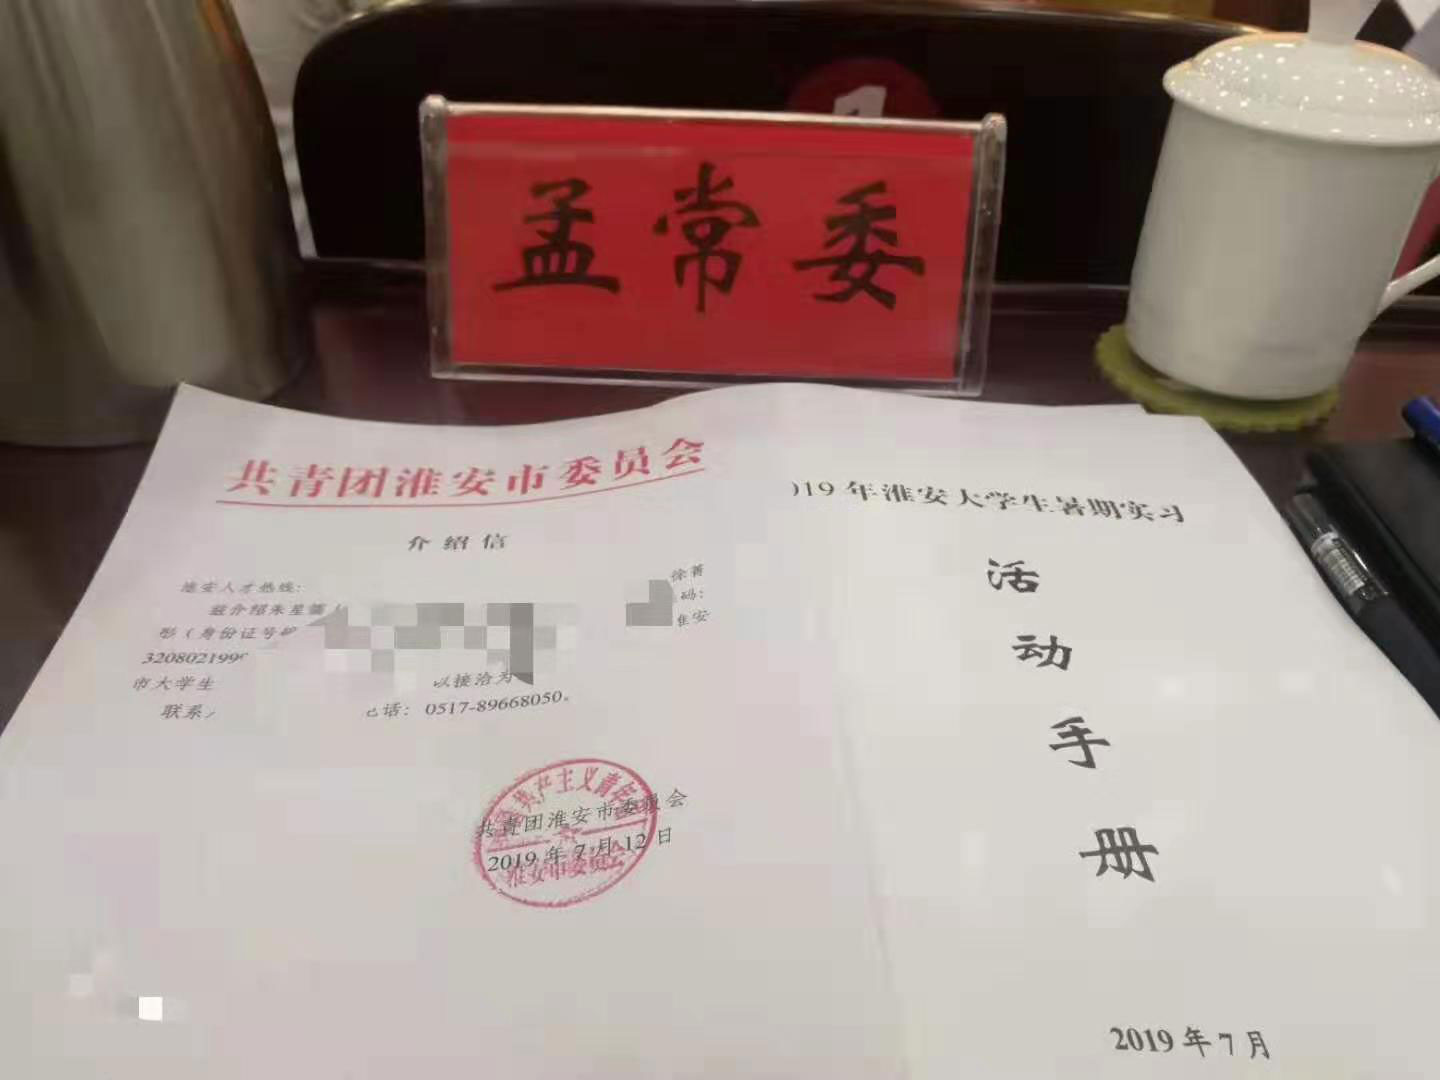 1
孟常委
共青团淮安市委员会
介绍信
淮安人才热线:
兹介绍朱星
徐菁
彤(身份证号
码:
320802199
淮安
市大学生
以接洽为
联系
话: 0517-89668050。
共产主义青年
共青团淮安市委员会
2019年7月12日
淮安市委员会
019年淮安大学生暑期实习
活
动
手
册
2019年7月